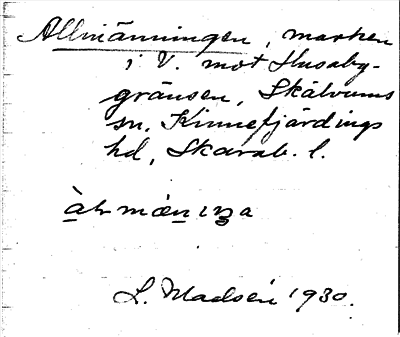 Allmänningen, marken
i V. mot Husaby-
gränsen, Skälvums
sn, Kinnefjärdings
hd, Skarab. l.
L. Madsén 1930.